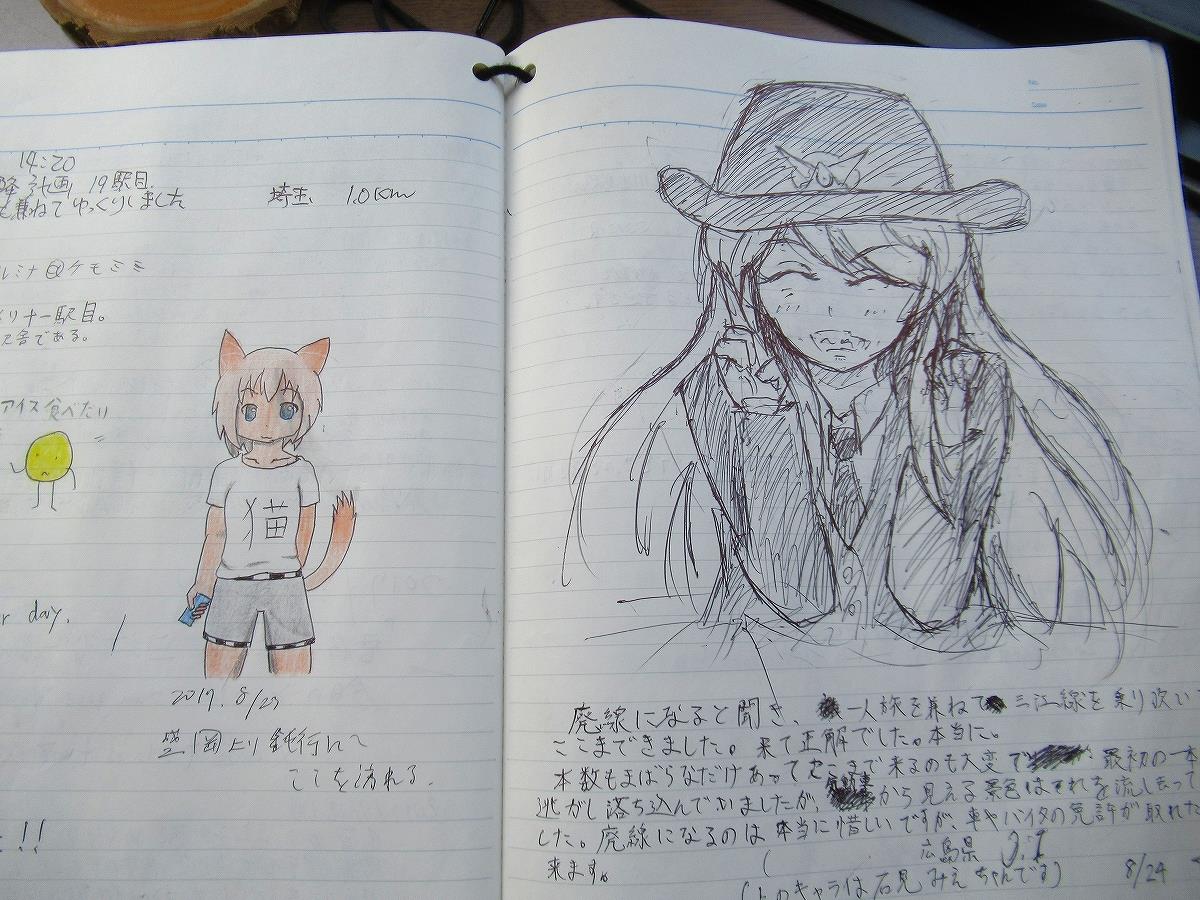 14:20
降計画 19駅目
も兼ねてゆっくりしました
埼玉 1.0km
ルミナ@ケモミミ
メリナ一駅目。
アイス食べたい
猫
r day.
2017. 8/23
盛岡より鈍行にて
ここを訪れる。
!!
No.
Date
廃線になると聞き、一人旅を兼ねて三江線を乗り次い
ここまできました。来て正解でした。本当に。
本数もまばらなだけあってここまで来るのも大変で 最初の一本
逃がし落ち込んでいましたが、から見える景色はそれを流し去って
した。廃線になるのは本当に惜しいですが、車やバイクの免許が取れた
来ます。
広島県 J.I
8/24
(上のキャラは石見みえちゃんです)